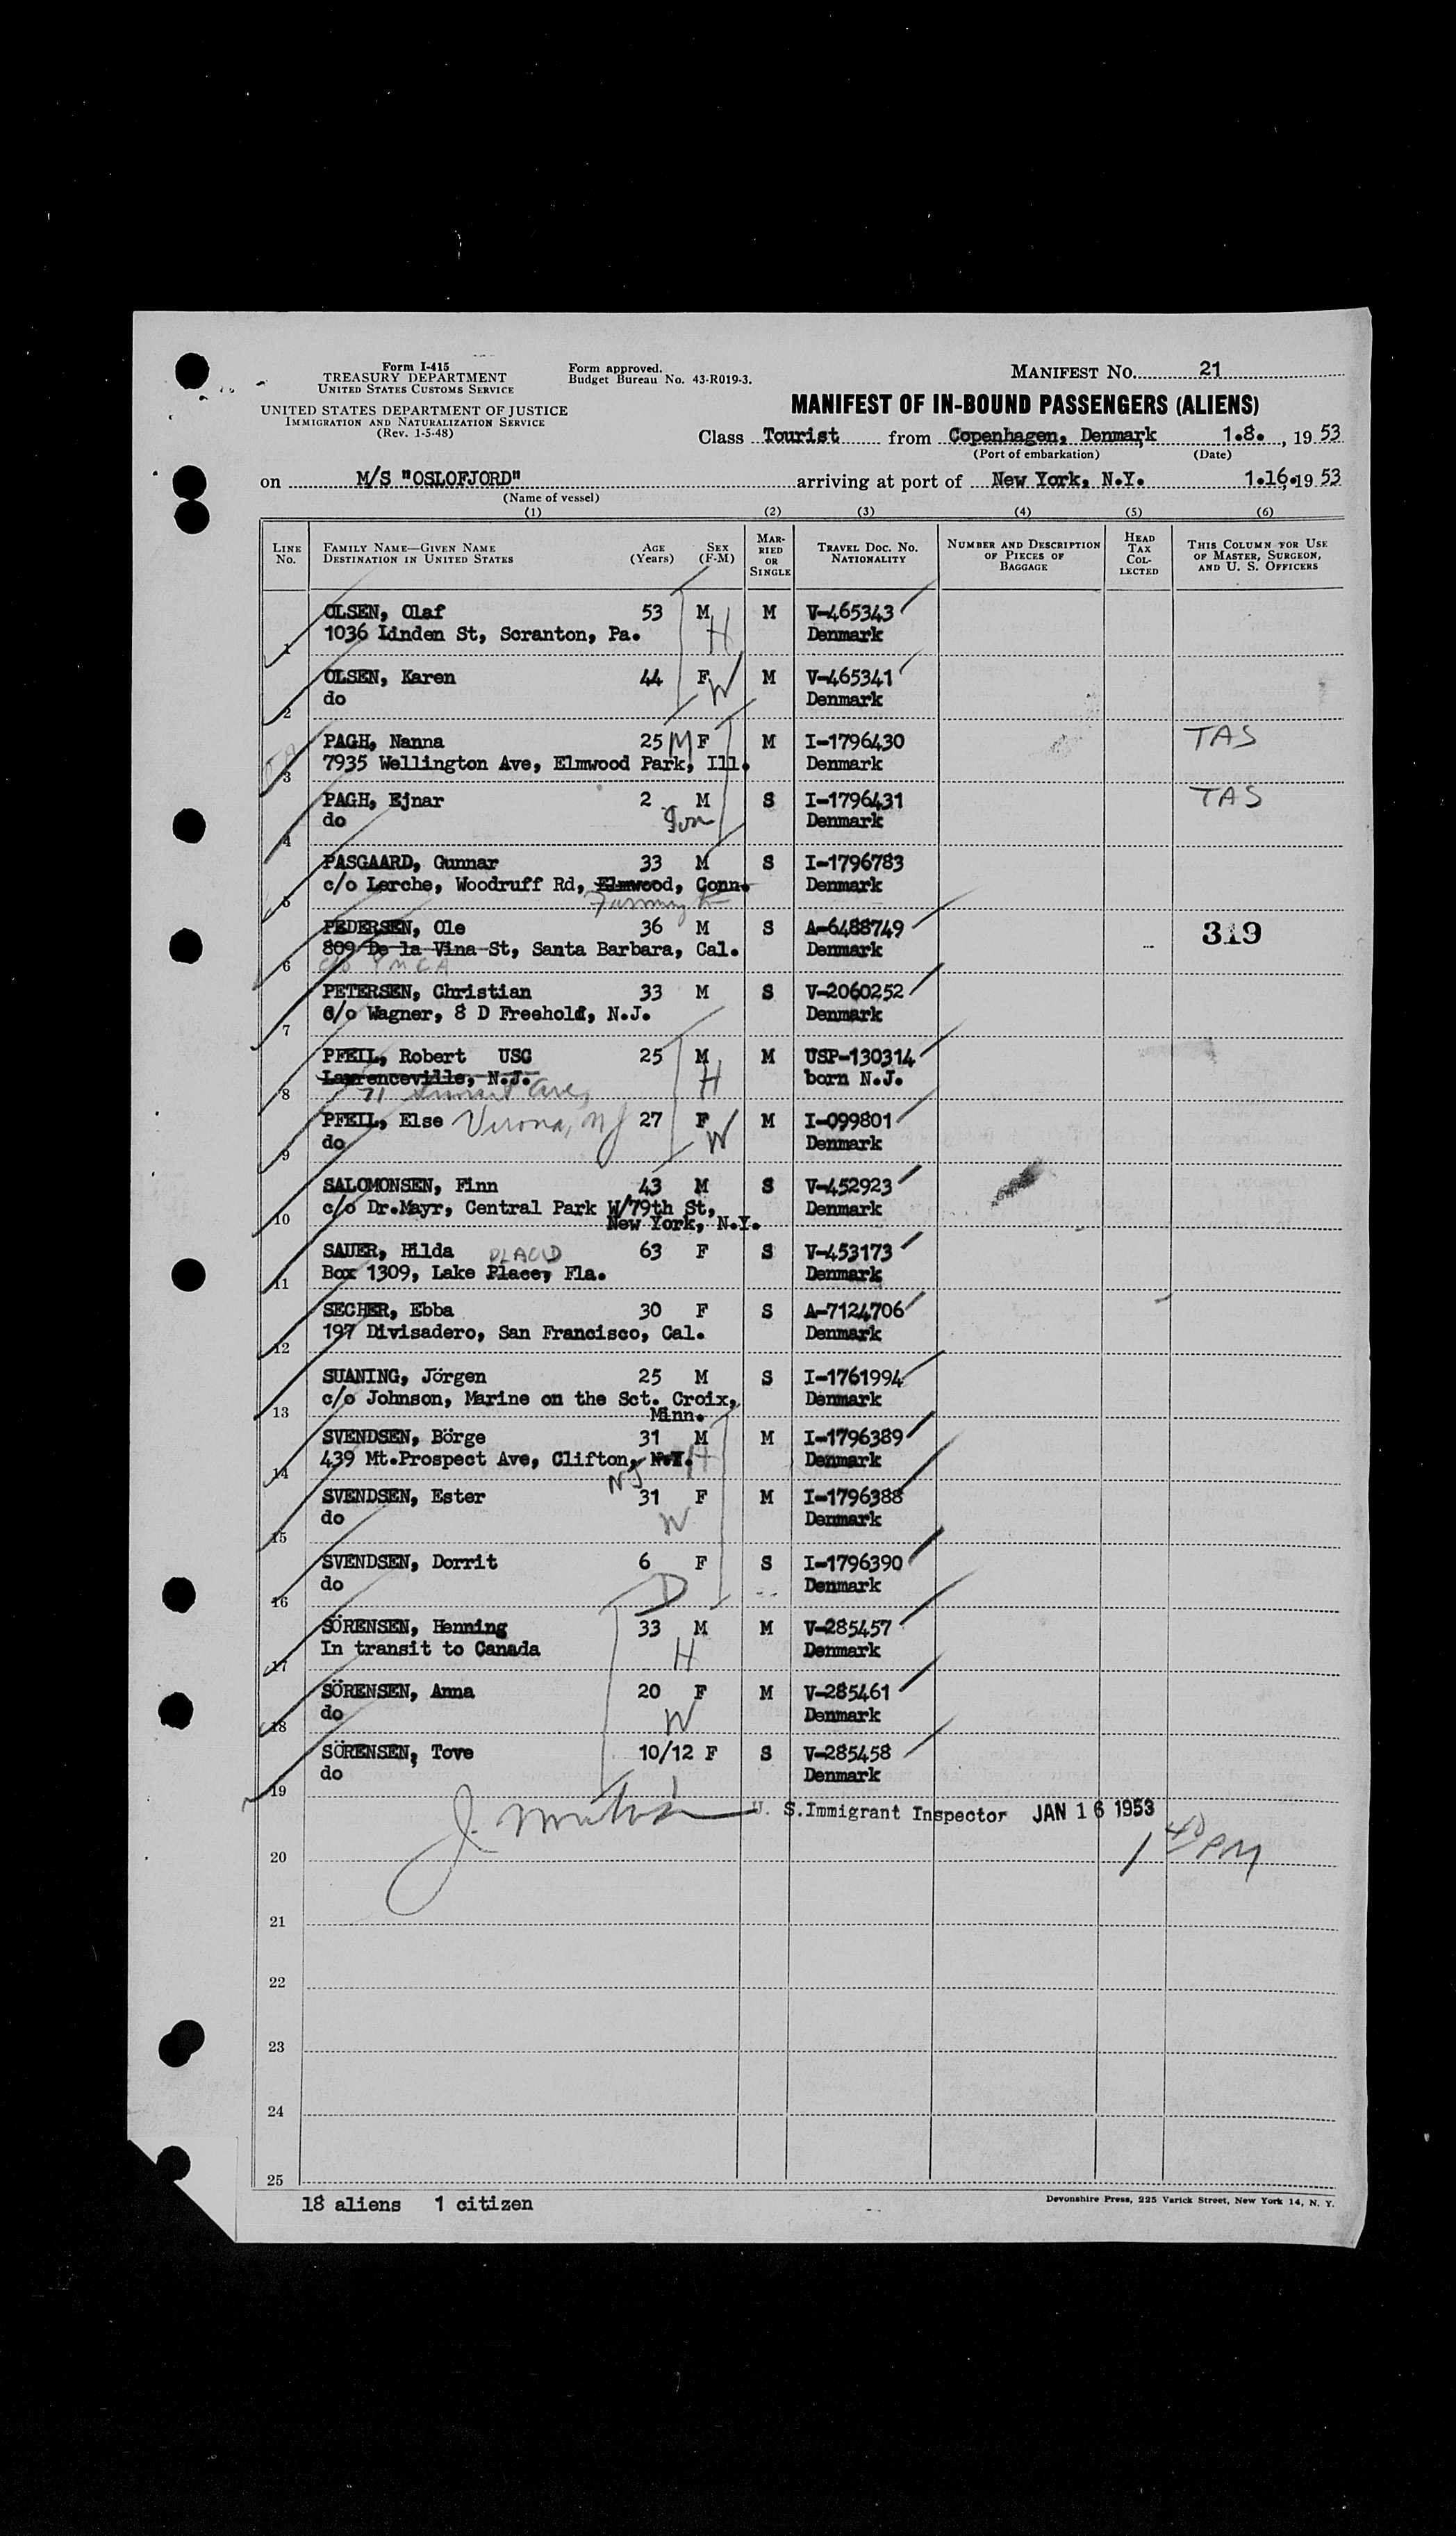 Form I-415
TREASURY DEPARTMENT
UNITED STATES CUSTOMS SERVICE
UNITED STATES DEPARTMENT OF JUSTICE
IMMIGRATION AND NATURALIZATION SERVICE
(Rev. 1-5-48)
Form approved.
Budget Bureau No. 43-R019-3.
MANIFEST NO. 21
MANIFEST OF IN-BOUND PASSENGERS (ALIENS)
Class Tourist from Copenhagen, Denmark 1.8., 19 53
(Port of embarkation) (Date)
on M/S "OSLOFJORD" arriving at port of New York, N.Y. 1.16.19 53
(Name of vessel)
(1) (2) (3) (4) (5) (6)
LINE NO. FAMILY NAME—GIVEN NAME DESTINATION IN UNITED STATES AGE (Years) SEX (F-M) MARRIED OR SINGLE TRAVEL DOC. NO. NATIONALITY NUMBER AND DESCRIPTION OF PIECES OF BAGGAGE HEAD TAX COLLECTED THIS COLUMN FOR USE OF MASTER, SURGEON, AND U. S. OFFICERS
OLSEN, Olaf 53 M H M V-465343
1 1036 Linden St, Scranton, Pa. Denmark
OLSEN, Karen 44 F W M V-465341
2 do Denmark
PAGH, Nanna 25 M F M I-1796430 TAS
3 7935 Wellington Ave, Elmwood Park, Ill. Denmark
PAGH, Ejnar 2 M S I-1796431 TAS
4 do Son Denmark
PASGAARD, Gunnar 33 M S I-1796783
5 c/o Lerche, Woodruff Rd, Elmwood, Conn. Denmark
PEDERSEN, Ole 36 M S A-6488749 319
6 809 De la Vina St, Santa Barbara, Cal. Denmark
c/o YMCA
PETERSEN, Christian 33 M S V-2060252
7 c/o Wagner, 8 D Freehold, N.J. Denmark
PFEIL, Robert USC 25 M H M USP-130314
8 Lawrenceville, N.J. born N.J.
71 Sunset Ave,
PFEIL, Else Verona, NJ 27 F W M I-099801
9 do Denmark
SALOMONSEN, Finn 43 M S V-452923
10 c/o Dr.Mayr, Central Park W/79th St, Denmark
New York, N.Y.
SAUER, Hilda PLACID 63 F S V-453173
11 Box 1309, Lake Place, Fla. Denmark
SECHER, Ebba 30 F S A-7124706
12 197 Divisadero, San Francisco, Cal. Denmark
SUANING, Jörgen 25 M S I-1761994
13 c/o Johnson, Marine on the Sct. Croix, Denmark
Minn.
SVENDSEN, Börge 31 M M I-1796389
14 439 Mt.Prospect Ave, Clifton, N.Y. H Denmark
NJ
SVENDSEN, Ester 31 F M I-1796388
15 do W Denmark
SVENDSEN, Dorrit 6 F S I-1796390
16 do D Denmark
SÖRENSEN, Henning 33 M M V-285457
17 In transit to Canada H Denmark
SÖRENSEN, Anna 20 F M V-285461
18 do W Denmark
SÖRENSEN, Tove 10/12 F S V-285458
19 do Denmark
U. S.Immigrant Inspector JAN 16 1953
20 1 40 PM
21
22
23
24
25
18 aliens 1 citizen
Devonshire Press, 225 Varick Street, New York 14, N. Y.